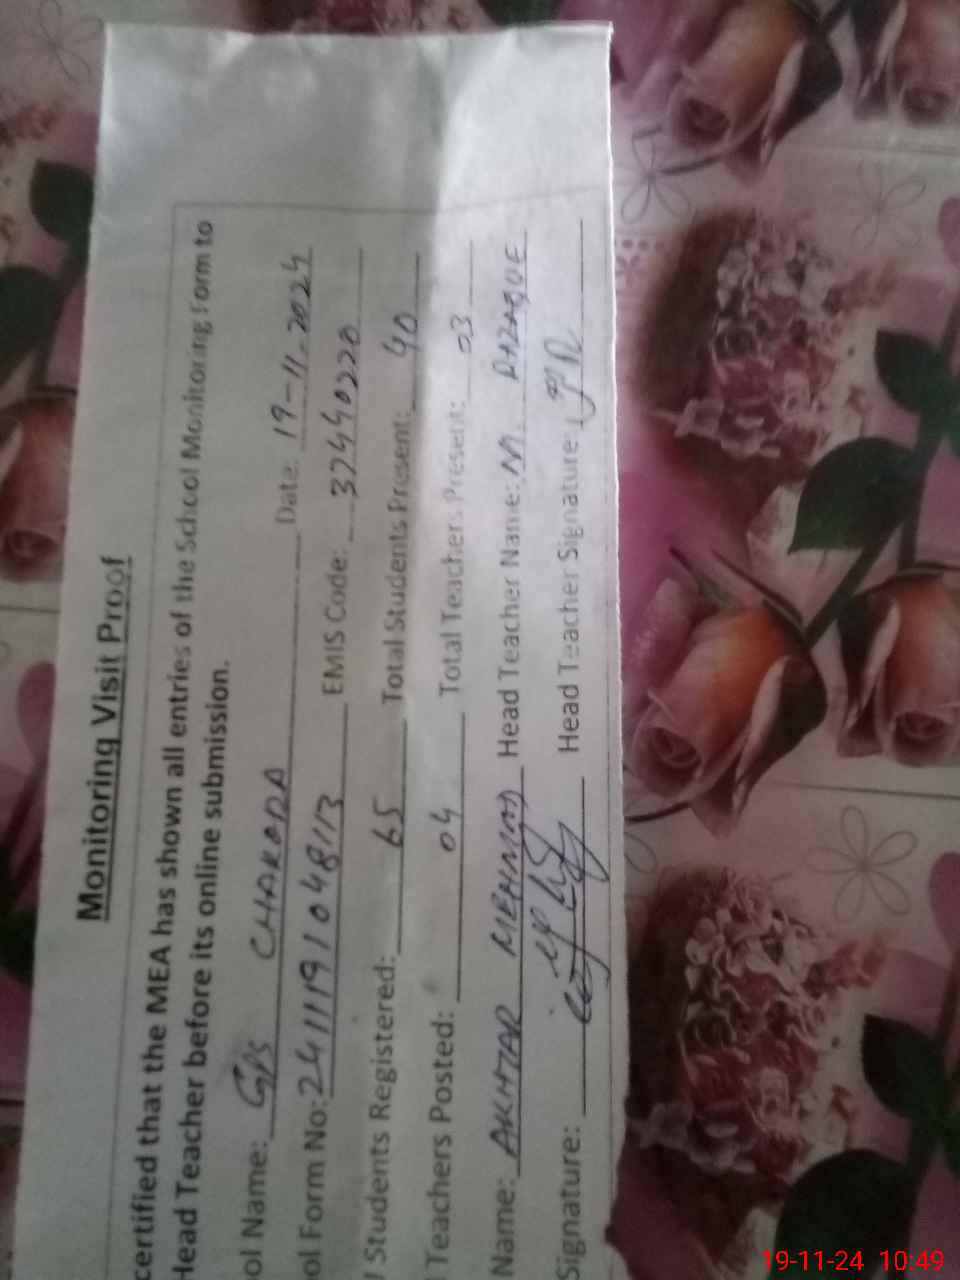 Monitoring Visit Proof
certified that the MEA has shown all entries of the School Monitoring Form to
Head Teacher before its online submission.
ol Name: GPS CHAKORA Date: 19-11-2024
ol Form No: 2411191048113 EMIS Code: 32440220
l Students Registered: 65 Total Students Present: 40
Teachers Posted: 04 Total Teachers Present: 03
Name: AKHTAR MEHMOOD Head Teacher Name: M. RAZAQUE
Signature: Head Teacher Signature:
19-11-24 10:49